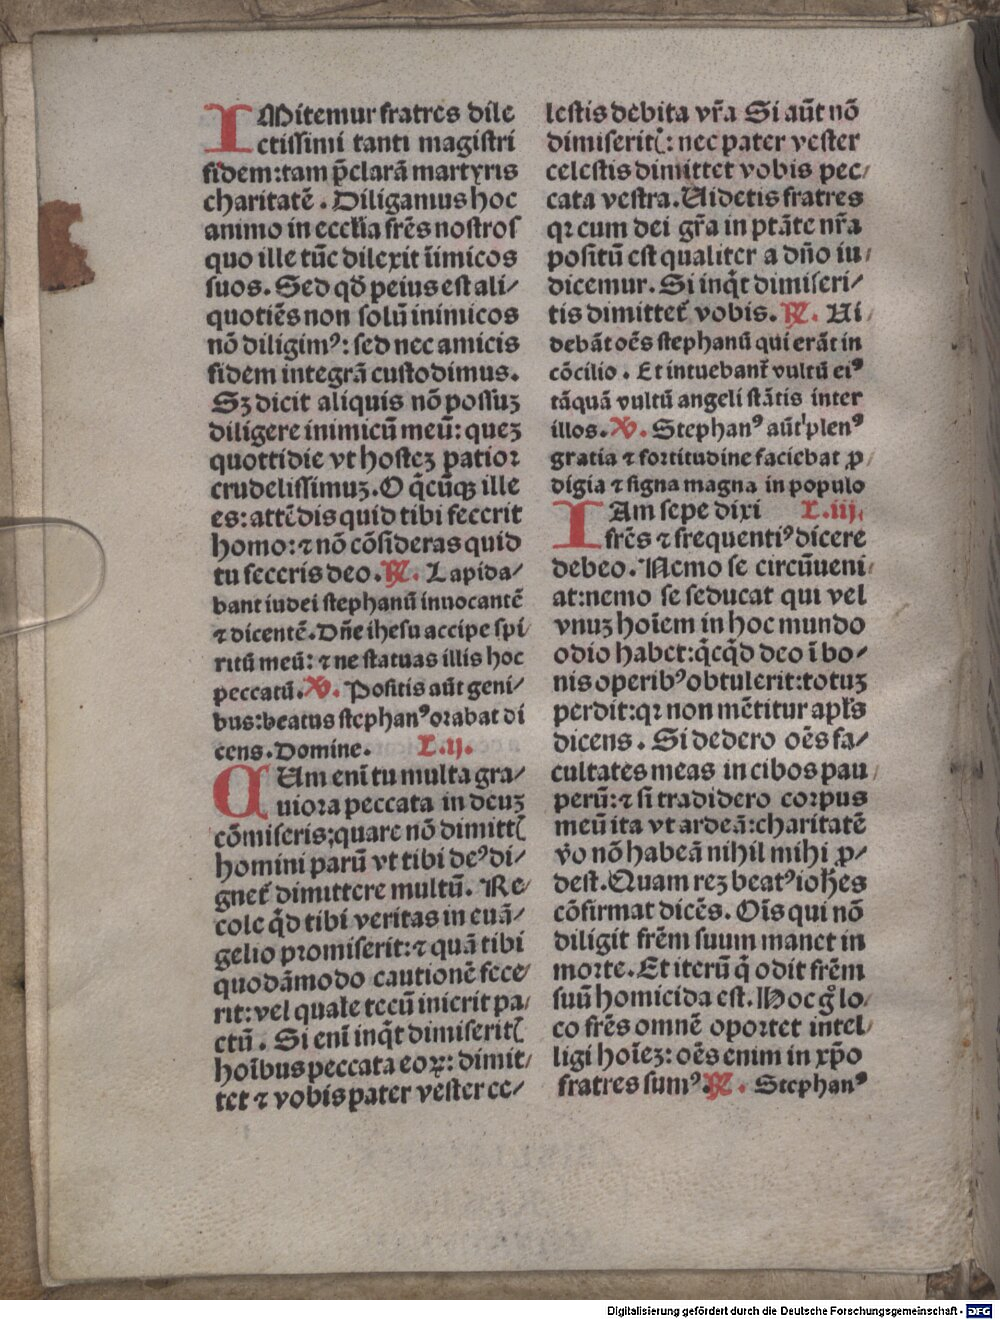 IMitemur fratres dile
ctissimi tanti magistri
fidem:tam p̄clarā martyris
charitatē . Diligamus hoc
animo in eccłia frēs nostros
quo ille tūc dilexit īimicos
suos. Sed qđ peius est ali/
quotiēs non solū inimicos
nō diligimꝰ: sed nec amicis
fidem integrā custodimus.
Sꝫ dicit aliquis nō possuꝫ
diligere inimicū meū: queꝫ
quottidie vt hosteꝫ patior
crudelissimuꝫ. O q̄cūqꝫ ille
es: attēdis quid tibi fecerit
homo: ⁊ nō cōsideras quid
tu feceris deo. ℟. Lapida/
bant iudei stephanū inuocantē
⁊ dicentē. Dn̄e ihesu accipe spi/
ritū meū: ⁊ ne statuas illis hoc
peccatū. ℣. Positis aūt geni/
bus: beatus stephanꝰ orabat di
cens. Domine. L.ij.
CUm enī tu multa gra/
uiora peccata in deuꝫ
cōmiseris; quare nō dimittꝭ
homini parū vt tibi deꝰ di/
gnet᷑ dimittere multū. Re/
cole qd̄ tibi veritas in euā/
gelio promiserit: ⁊ quā tibi
quodāmodo cautionē fece/
rit: vel quale tecū inierit pa/
ctū . Si enī inq̄t dimiseritꝭ
hoībus peccata eoꝝ: dimit/
tet ⁊ vobis pater vester ce/
lestis debita vr̄a Si aūt nō
dimiseritꝭ: nec pater vester
celestis dimittet vobis pec/
cata vestra. Uidetis fratres
qꝛ cum dei gr̄a in ptāte nr̄a
positū est qualiter a dn̄o iu/
dicemur. Si inq̄t dimiseri/
tis dimittet᷑ vobis. ℟. Ui/
debāt oēs stephanū qui erāt in
cōcilio . Et intuebant᷑ vultū eiꝰ
tāquā vultū angeli stātis inter
illos. ℣. Stephanꝰ aūt plenꝰ
gratia ⁊ fortitudine faciebat ꝓ/
digia ⁊ signa magna in populo
IAm sepe dixi L.iij.
frēs ⁊ frequentiꝰ dicere
debeo. Nemo se circūueni/
at: nemo se seducat qui vel
vnuꝫ hoīem in hoc mundo
odio habet: q̄cq̄d deo ī bo/
nis operibꝰ obtulerit: totuꝫ
perdit: qꝛ non mētitur apłs
dicens . Si dedero oēs fa/
cultates meas in cibos pau/
perū: ⁊ si tradidero corpus
meū ita vt ardeā: charitatē
v̊o nō habeā nihil mihi ꝓ/
dest. Quam reꝫ beatꝰ ioh̄es
cōfirmat dicēs. Oīs qui nō
diligit frēm suum manet in
morte. Et iterū q̄ odit frēm
suū homicida est. Hoc gͦ lo/
co frēs omnē oportet intel/
ligi hoīeꝫ: oēs enim in xp̄o
fratres sumꝰ. ℟. Stephanꝰ
Digitalisierung gefördert durch die Deutsche Forschungsgemeinschaft - DFG